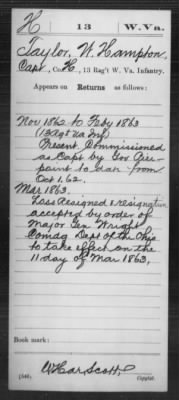 H 13 W. Va.
Taylor, W. Hampton,
Capt., Co. H, 13 Reg't W. Va. Infantry.
Appears on Returns as follows:
Nov 1862 to Feby 1863
(13 Regt Va Inf)
Present Commissioned
as Capt by Gov Pier-
point to date from
Oct 1. 62.
Mar 1863.
Loss Resigned & resignation
accepted by order of
Major Gen Wright
Comdg Dept of the Ohio
to take effect on the
11 day of Mar 1863,
Book mark:
(546)
Copyist.